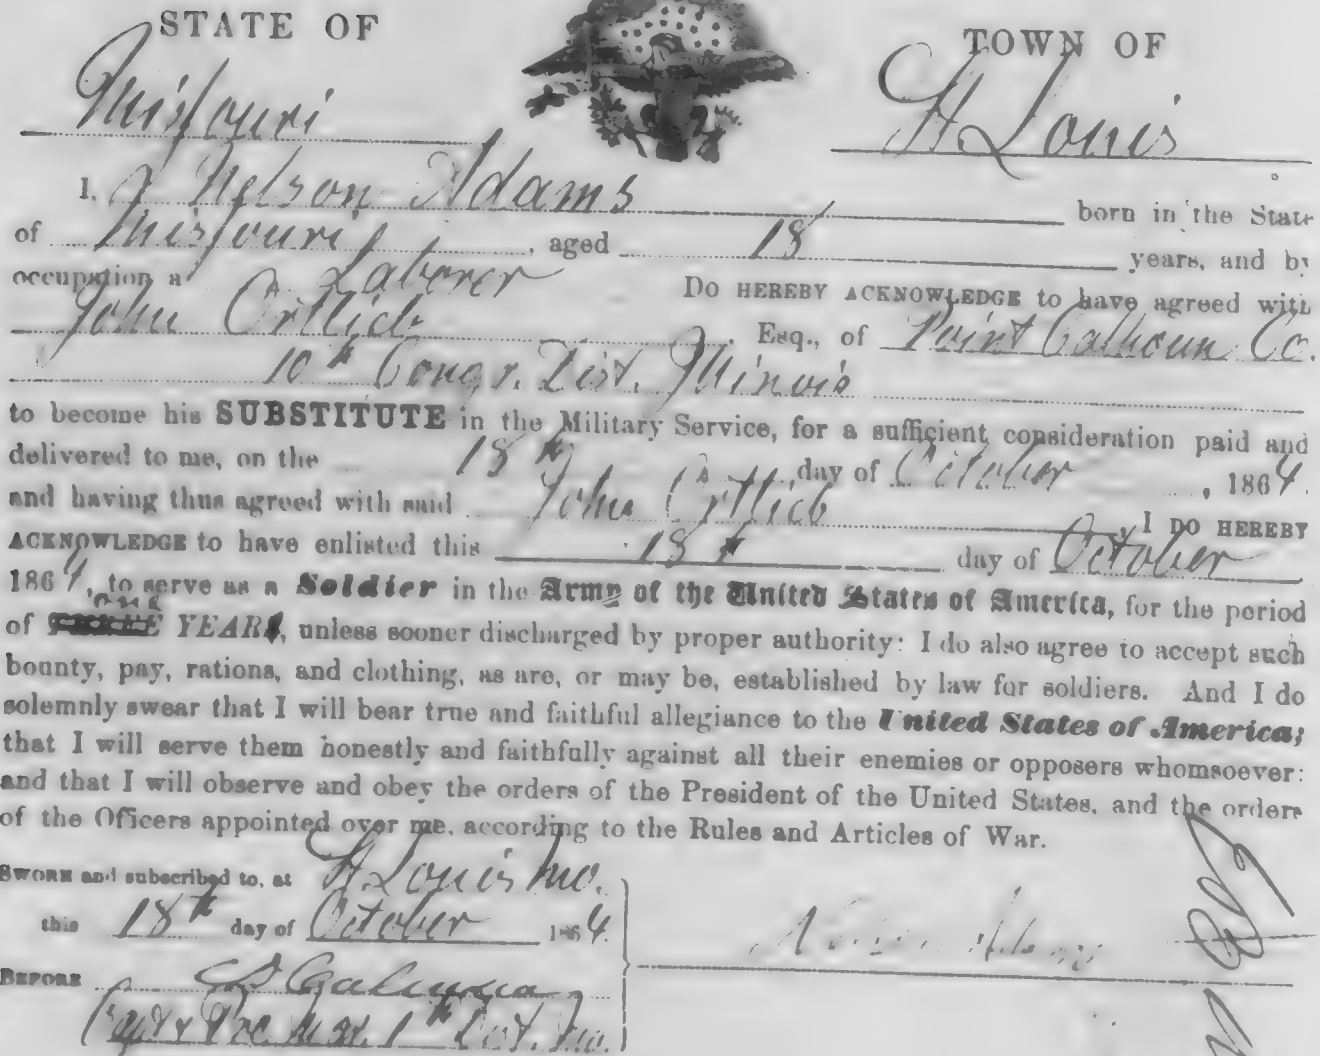 STATE OF
TOWN OF
Missouri
St Louis
I, Nelson Adams born in the State
of Missouri, aged 18 years, and by
occupation a Laborer DO HEREBY ACKNOWLEDGE to have agreed with
John Ortlieb, Esq., of Point Calhoun Co.
10th Congr. Dist. Illinois
to become his SUBSTITUTE in the Military Service, for a sufficient consideration paid and
delivered to me, on the 18th day of October, 1864.
and having thus agreed with said John Ortlieb I DO HEREBY
ACKNOWLEDGE to have enlisted this 18th day of October
1864, to serve as a Soldier in the Army of the United States of America, for the period
of one YEAR, unless sooner discharged by proper authority: I do also agree to accept such
bounty, pay, rations, and clothing, as are, or may be, established by law for soldiers. And I do
solemnly swear that I will bear true and faithful allegiance to the United States of America;
that I will serve them honestly and faithfully against all their enemies or opposers whomsoever:
and that I will observe and obey the orders of the President of the United States, and the orders
of the Officers appointed over me, according to the Rules and Articles of War.
SWORN and subscribed to, at St Louis Mo.
this 18th day of October 1864.
Nelson Adams
BEFORE
Capt & Pro. Mar. 1st Dist. Mo.